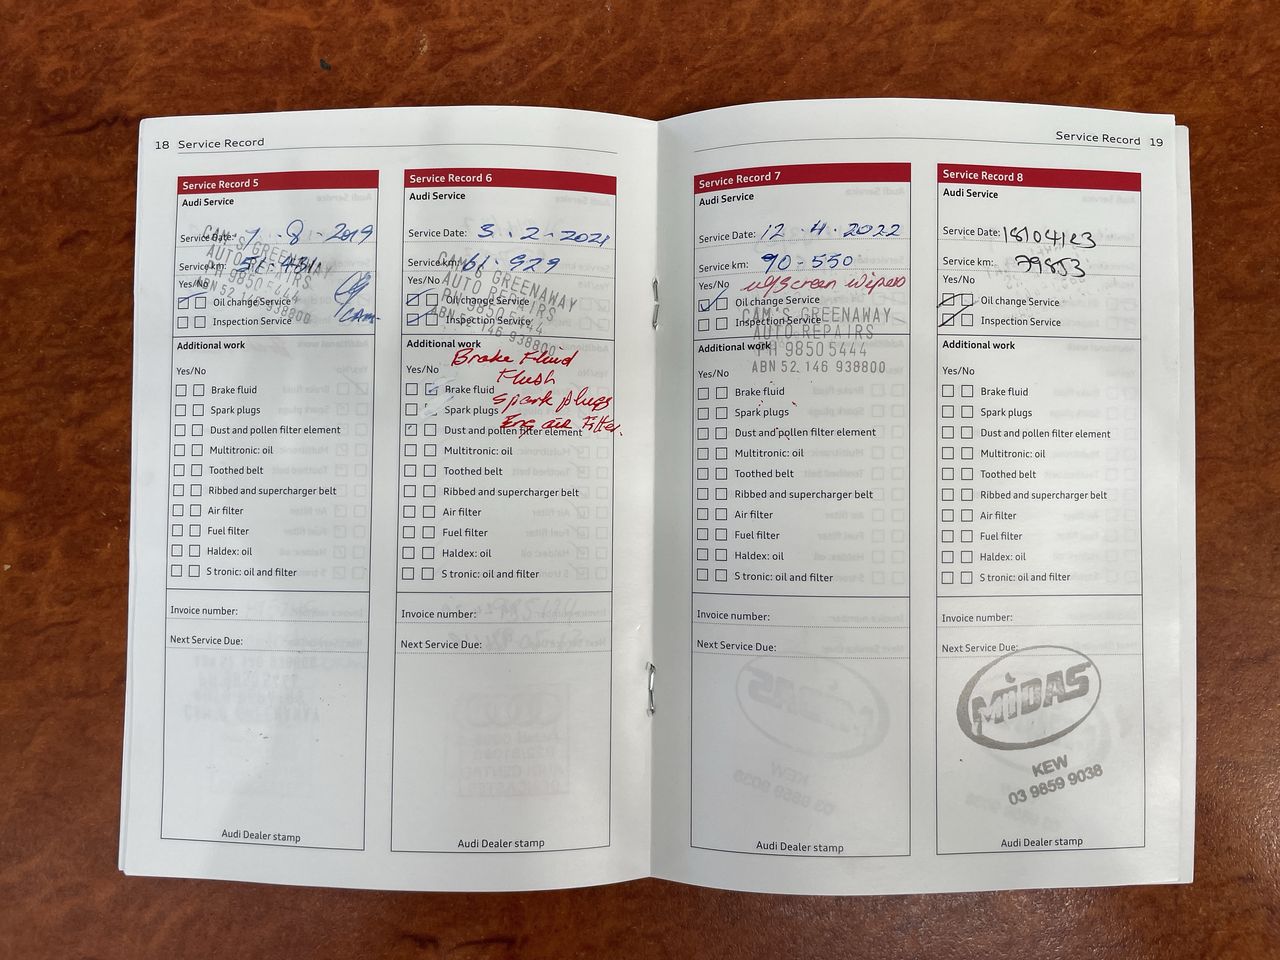 18 Service Record
Service Record 5
Audi Service
Service Date: 7 . 8 . 2019
Service km: 51 . 431
CAM'S GREENAWAY
AUTO REPAIRS
PH 9850 5444
ABN 52 146 938800
Yes/No
Oil change Service
Inspection Service
CAM
Additional work
Yes/No
Brake fluid
Spark plugs
Dust and pollen filter element
Multitronic: oil
Toothed belt
Ribbed and supercharger belt
Air filter
Fuel filter
Haldex: oil
S tronic: oil and filter
Invoice number:
Next Service Due:
Audi Dealer stamp
Service Record 6
Audi Service
Service Date: 3 . 2 - 2021
Service km: 61 - 929
CAM'S GREENAWAY
AUTO REPAIRS
PH 9850 5444
ABN 52 146 938800
Yes/No
Oil change Service
Inspection Service
Additional work
Brake Fluid
Flush
Spark plugs
Eng air Filter.
Yes/No
Brake fluid
Spark plugs
Dust and pollen filter element
Multitronic: oil
Toothed belt
Ribbed and supercharger belt
Air filter
Fuel filter
Haldex: oil
S tronic: oil and filter
Invoice number:
Next Service Due:
Audi Dealer stamp
Service Record 19
Service Record 7
Audi Service
Service Date: 12 . 4 . 2022
Service km: 70 - 550
Yes/No w/Screen wipers
Oil change Service
Inspection Service
CAM'S GREENAWAY
AUTO REPAIRS
PH 9850 5444
ABN 52 146 938800
Additional work
Yes/No
Brake fluid
Spark plugs
Dust and pollen filter element
Multitronic: oil
Toothed belt
Ribbed and supercharger belt
Air filter
Fuel filter
Haldex: oil
S tronic: oil and filter
Invoice number:
Next Service Due:
Audi Dealer stamp
Service Record 8
Audi Service
Service Date: 18/04/23
Service km: 79853
Yes/No
Oil change Service
Inspection Service
Additional work
Yes/No
Brake fluid
Spark plugs
Dust and pollen filter element
Multitronic: oil
Toothed belt
Ribbed and supercharger belt
Air filter
Fuel filter
Haldex: oil
S tronic: oil and filter
Invoice number:
Next Service Due:
MIDAS
KEW
03 9859 9038
Audi Dealer stamp